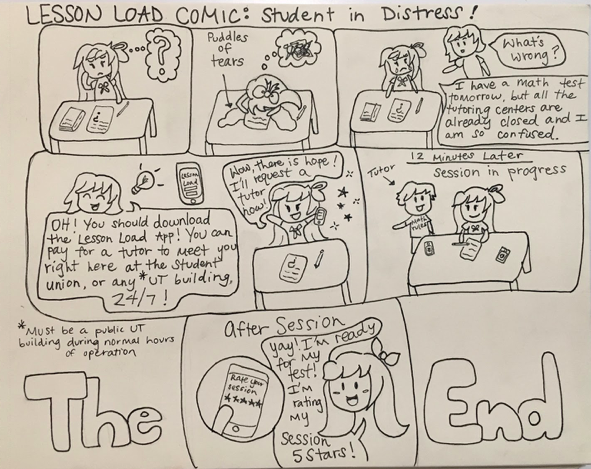 LESSON LOAD COMIC: Student in Distress!
?
Puddles
of
tears
What's
wrong?
I have a math test
tomorrow, but all the
tutoring centers are
already closed and I
am so confused.
LESSON
LOAD
OH! You should download
the Lesson Load App! You can
pay for a tutor to meet you
right here at the student
union, or any *UT building,
24/7!
Wow, there is hope!
I'll request a
tutor
now!
12 Minutes Later
Session in progress
Tutor
MATH
RULES!
*Must be a public UT
building during normal hours
of operation
After Session
Rate your
session
★★★★★
yay! I'm ready
for my
test!
I'm
rating
my
Session
5 Stars!
The End